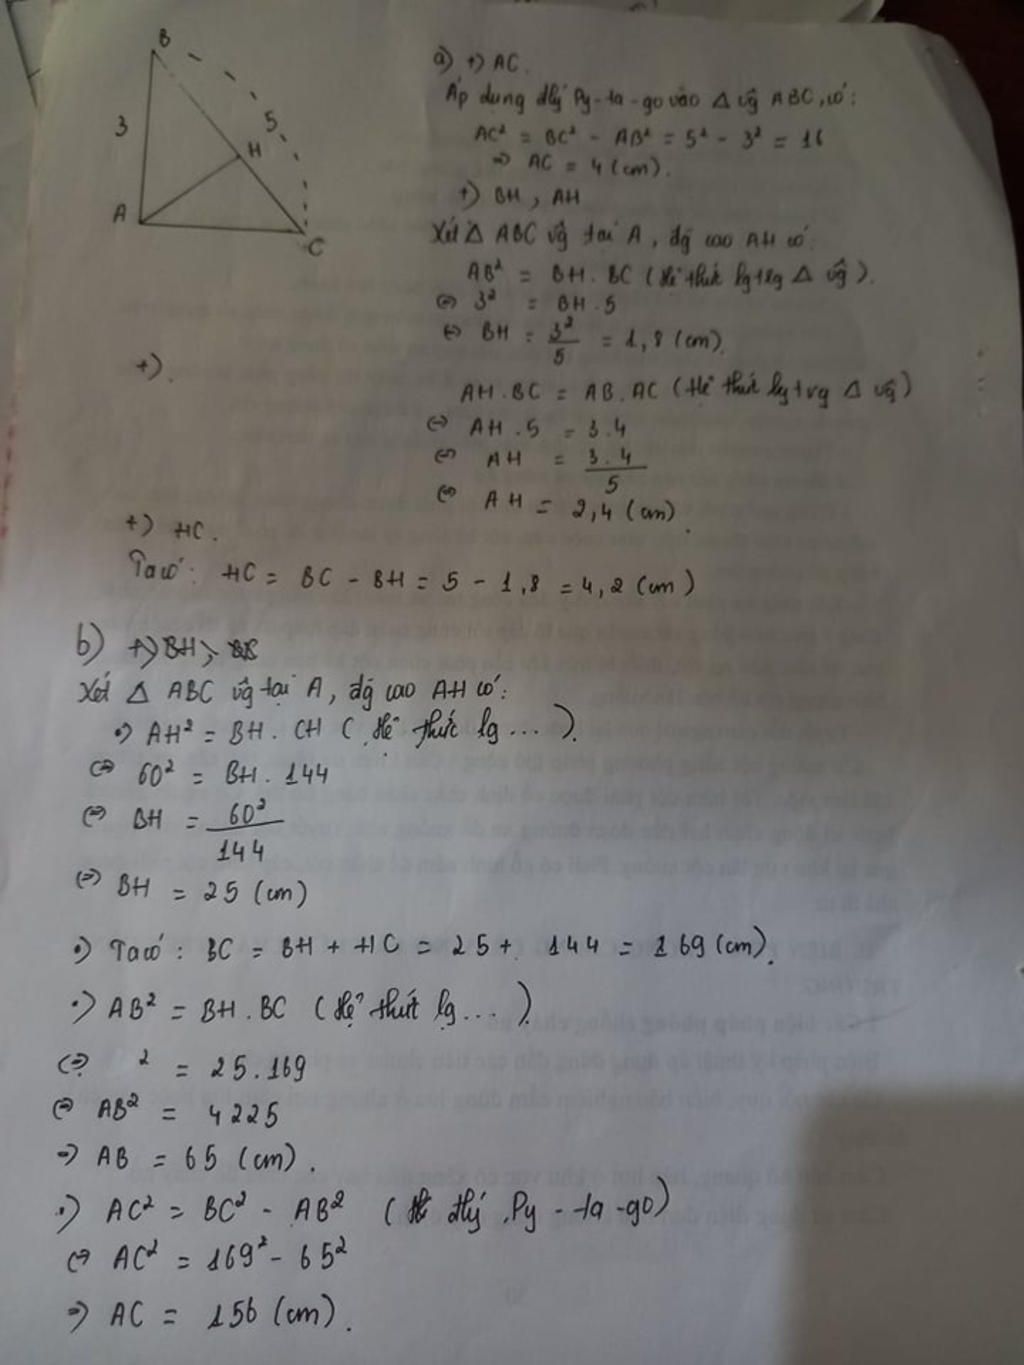 B
3
5
H
A
C
a) +) AC.
Áp dụng đlý Py-ta-go vào Δ vg ABC, có:
AC² = BC² - AB² = 5² - 3² = 16
=> AC = 4 (cm).
+) BH, AH
Xét Δ ABC vg tại A, đg cao AH có:
AB² = BH. BC (Hệ thức lg trg Δ vg).
<=> 3² = BH.5
<=> BH = 3²/5 = 1,8 (cm).
+).
AH.BC = AB.AC (Hệ thức lg trg Δ vg)
<=> AH.5 = 3.4
<=> AH = 3.4/5
<=> AH = 2,4 (cm).
+) HC.
Ta có: HC = BC - BH = 5 - 1,8 = 4,2 (cm)
b) +) BH,
Xét Δ ABC vg tại A, đg cao AH có:
•) AH² = BH. CH (Hệ thức lg ...).
<=> 60² = BH.144
<=> BH = 60²/144
<=> BH = 25 (cm)
•) Ta có: BC = BH + HC = 25 + 144 = 169 (cm).
•) AB² = BH.BC (Hệ thức lg ...)
<=> ² = 25.169
<=> AB² = 4225
=> AB = 65 (cm).
•) AC² = BC² - AB² (đlý Py-ta-go)
<=> AC² = 169² - 65²
=> AC = 156 (cm).